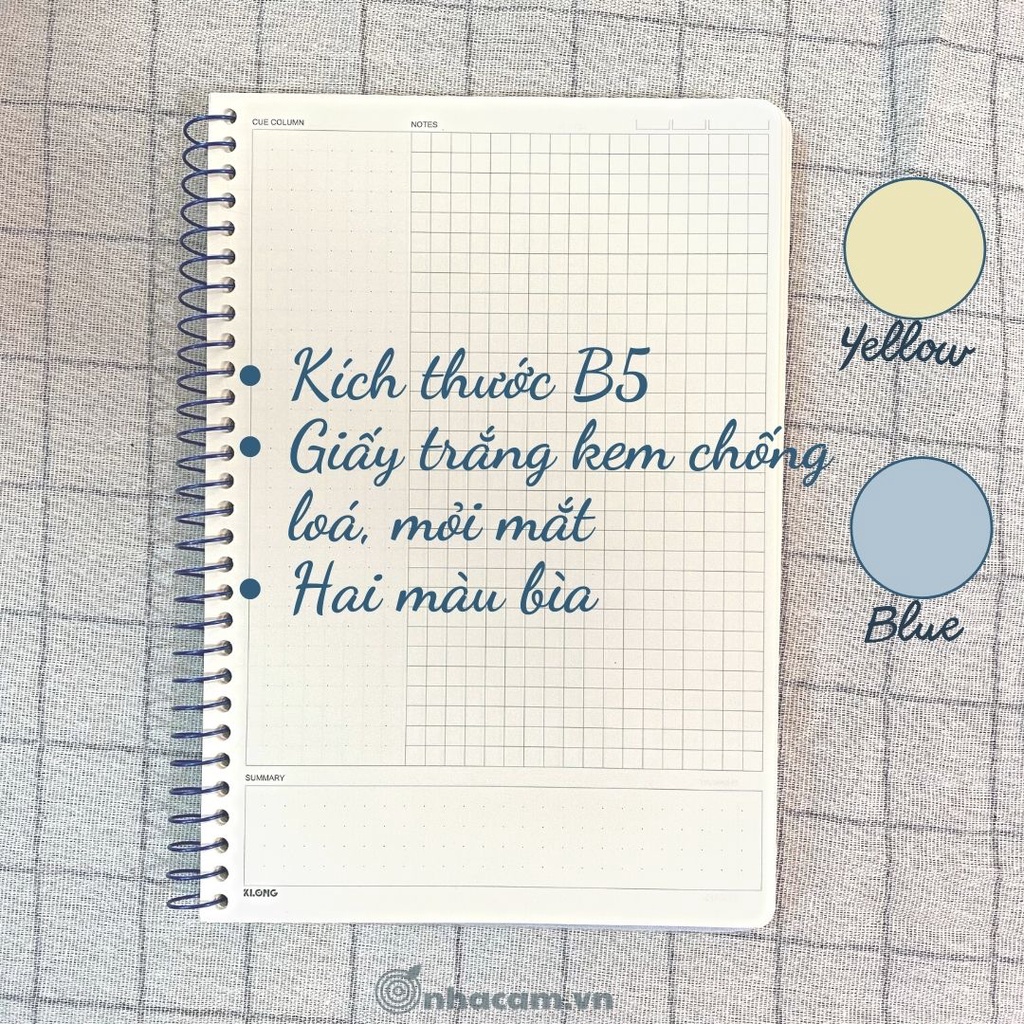 CUE COLUMN
NOTES
Yellow
• Kích thước B5
• Giấy trắng kem chống
loá, mỏi mắt
• Hai màu bìa
Blue
SUMMARY
KLONG
nhacam.vn